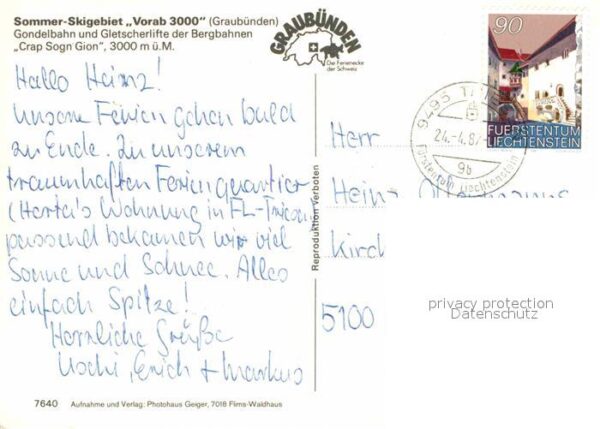 Sommer-Skigebiet „Vorab 3000" (Graubünden)
Gondelbahn und Gletscherlifte der Bergbahnen
„Crap Sogn Gion", 3000 m ü.M.
GRAUBÜNDEN
Die Ferienecke
der Schweiz
90
FUERSTENTUM
LIECHTENSTEIN
9495
24.-4.87
9b
Fürstentum Liechtenstein
Hallo Heinz!
Unsere Ferien gehen bald
zu Ende. Zu unserem
traumhaften Ferienquartier
(Herta's Wohnung in FL-Triesen)
passend bekamen wir viel
Sonne und Schnee. Alles
einfach Spitze!
Herzliche Grüße
Uschi, Erich + Markus
Reproduktion verboten
Herr
Heinz
Kirch
5100
privacy protection
Datenschutz
7640 Aufnahme und Verlag: Photohaus Geiger, 7018 Flims-Waldhaus